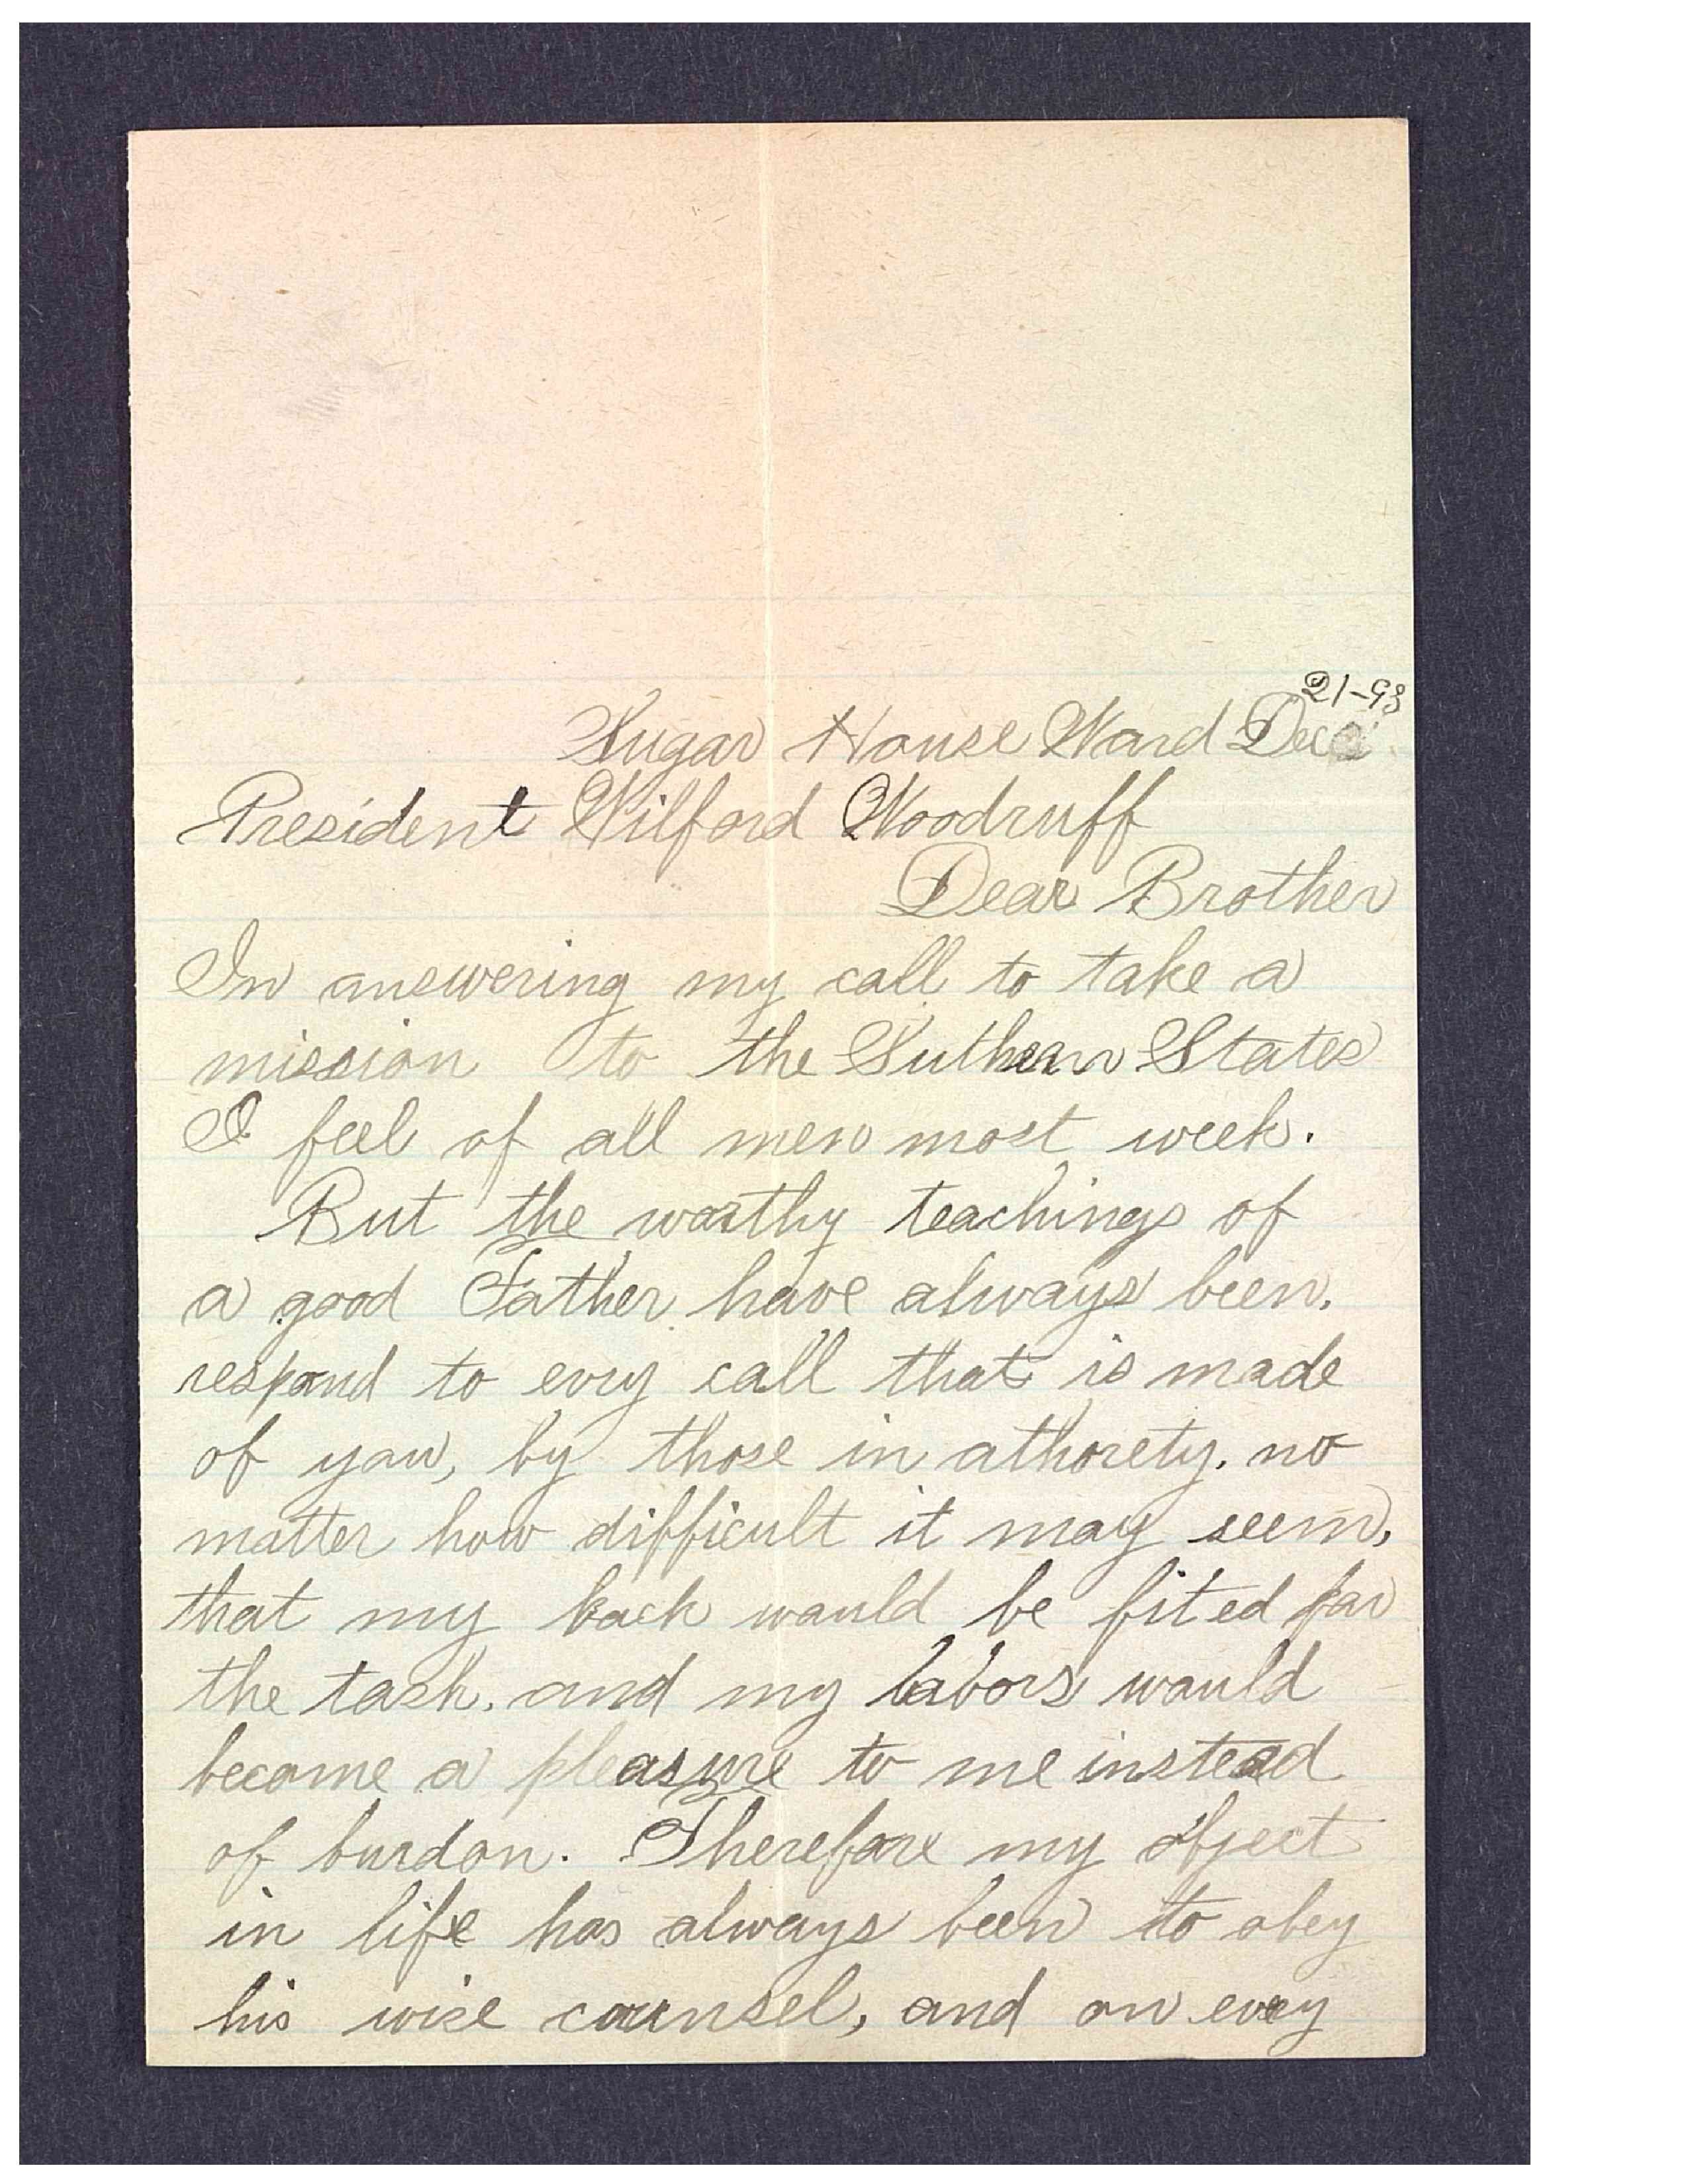 21-93
Sugar House Ward Dec
President Wilford Woodruff
Dear Brother
In answering my call to take a
mission to the Suthern States
I feel of all men most week.
But the worthy teachings of
a good Father have always been.
respond to evry call that is made
of you, by those in athorety. no
matter how difficult it may seem,
that my back would be fited for
the task. and my labors would
become a pleasure to me instead
of burdon. Therefore my object
in life has always been to obey
his wise counsel, and on every